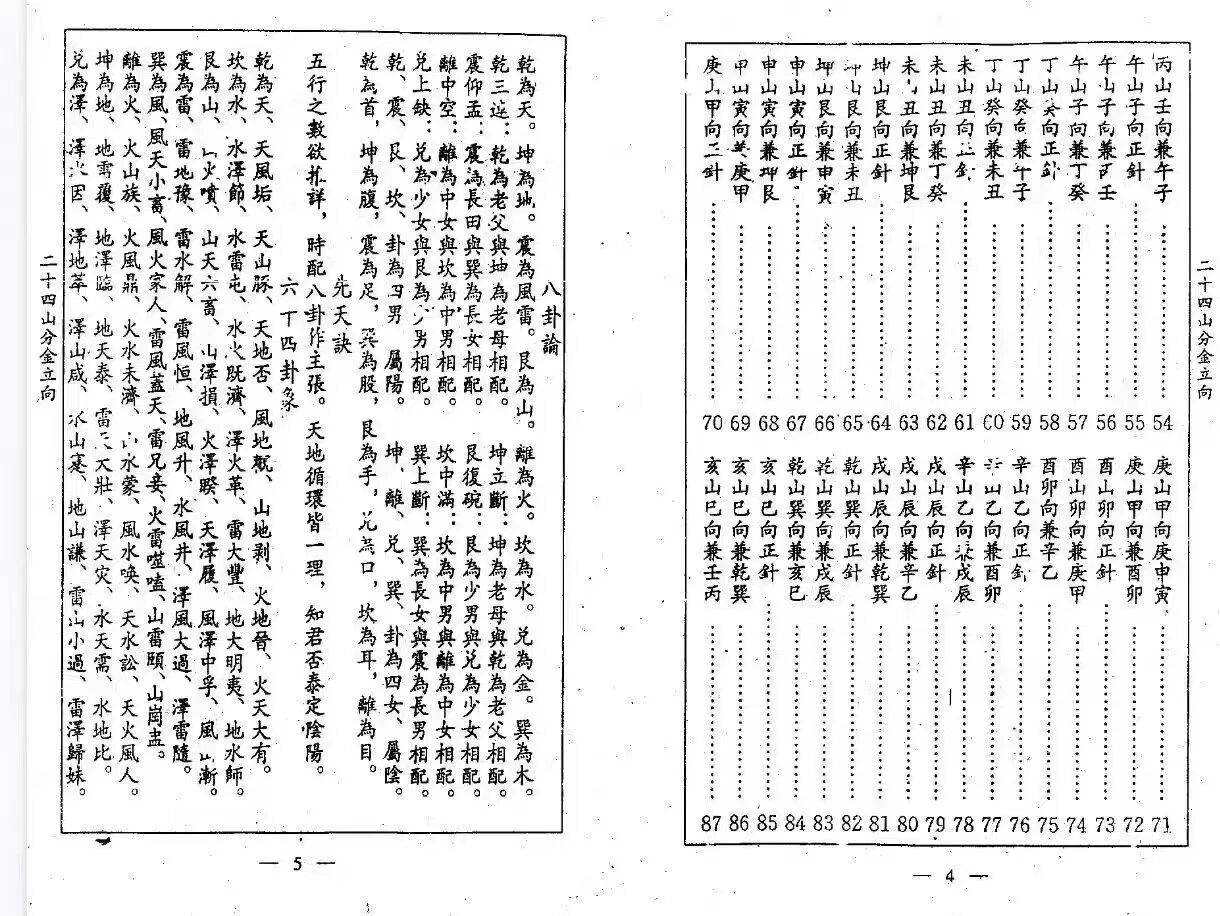 二十四山分金立向
丙山壬向兼午子……54
午山子向正針……55
午山子向兼丙壬……56
午山子向兼丁癸……57
丁山癸向正針……58
丁山癸向兼午子……59
丁山癸向兼未丑……60
未山丑向正針……61
未山丑向兼丁癸……62
未山丑向兼坤艮……63
坤山艮向正針……64
坤山艮向兼未丑……65
坤山艮向兼申寅……66
申山寅向正針……67
申山寅向兼坤艮……68
申山寅向兼庚甲……69
庚山甲向正針……70
庚山甲向庚申寅……71
庚山甲向兼酉卯……72
酉山卯向正針……73
酉山卯向兼庚甲……74
酉卯向兼辛乙……75
辛山乙向正針……76
辛山乙向兼酉卯……77
辛山乙向兼戌辰……78
戌山辰向正針……79
戌山辰向兼辛乙……80
戌山辰向兼乾巽……81
乾山巽向正針……82
乾山巽向兼戌辰……83
乾山巽向兼亥巳……84
亥山巳向正針……85
亥山巳向兼乾巽……86
亥山巳向兼壬丙……87
— 4 —
八卦論
乾為天。坤為地。震為風雷。艮為山。離為火。坎為水。兌為金。巽為木。
乾三連：乾為老父與坤為老母相配。坤立斷：坤為老母與乾為老父相配。
震仰孟：震為長田與巽為長女相配。艮復碗：艮為少男與兌為少女相配。
離中空：離為中女與坎為中男相配。坎中滿：坎為中男與離為中女相配。
兌上缺：兌為少女與艮為少男相配。巽上斷：巽為長女與震為長男相配。
乾、震、艮、坎、卦為四男屬陽。坤、離、兌、巽、卦為四女、屬陰。
乾為首，坤為腹，震為足，巽為股，艮為手，兌為口，坎為耳，離為目。
先天訣
五行之數欲推詳，時配八卦作主張。天地循環皆一理，知君否泰定陰陽。
六十四卦象
乾為天、天風垢、天山豚、天地否、風地觀、山地剥、火地晉、火天大有。
坎為水、水澤節、水雷屯、水火既濟、澤火革、雷大豐、地大明夷、地水師。
艮為山、山火噴、山天六畜、山澤損、火澤睽、天澤履、風澤中孚、風山漸。
震為雷、雷地豫、雷水解、雷風恒、地風升、水風井、澤風大過、澤雷隨。
巽為風、風天小畜、風火家人、雷風蓋天、雷兄妾、火雷噬嗑、山雷頤、山崗蛊。
離為火、火山族、火風鼎、火水未濟、山水蒙、風水喚、天水訟、天火風人。
坤為地、地雷覆、地澤臨、地天泰、雷天大壯、澤天灾、水天需、水地比。
兌為澤、澤火因、澤地萃、澤山咸、水山蹇、地山謙、雷山小過、雷澤歸妹。
二十四山分金立向
— 5 —